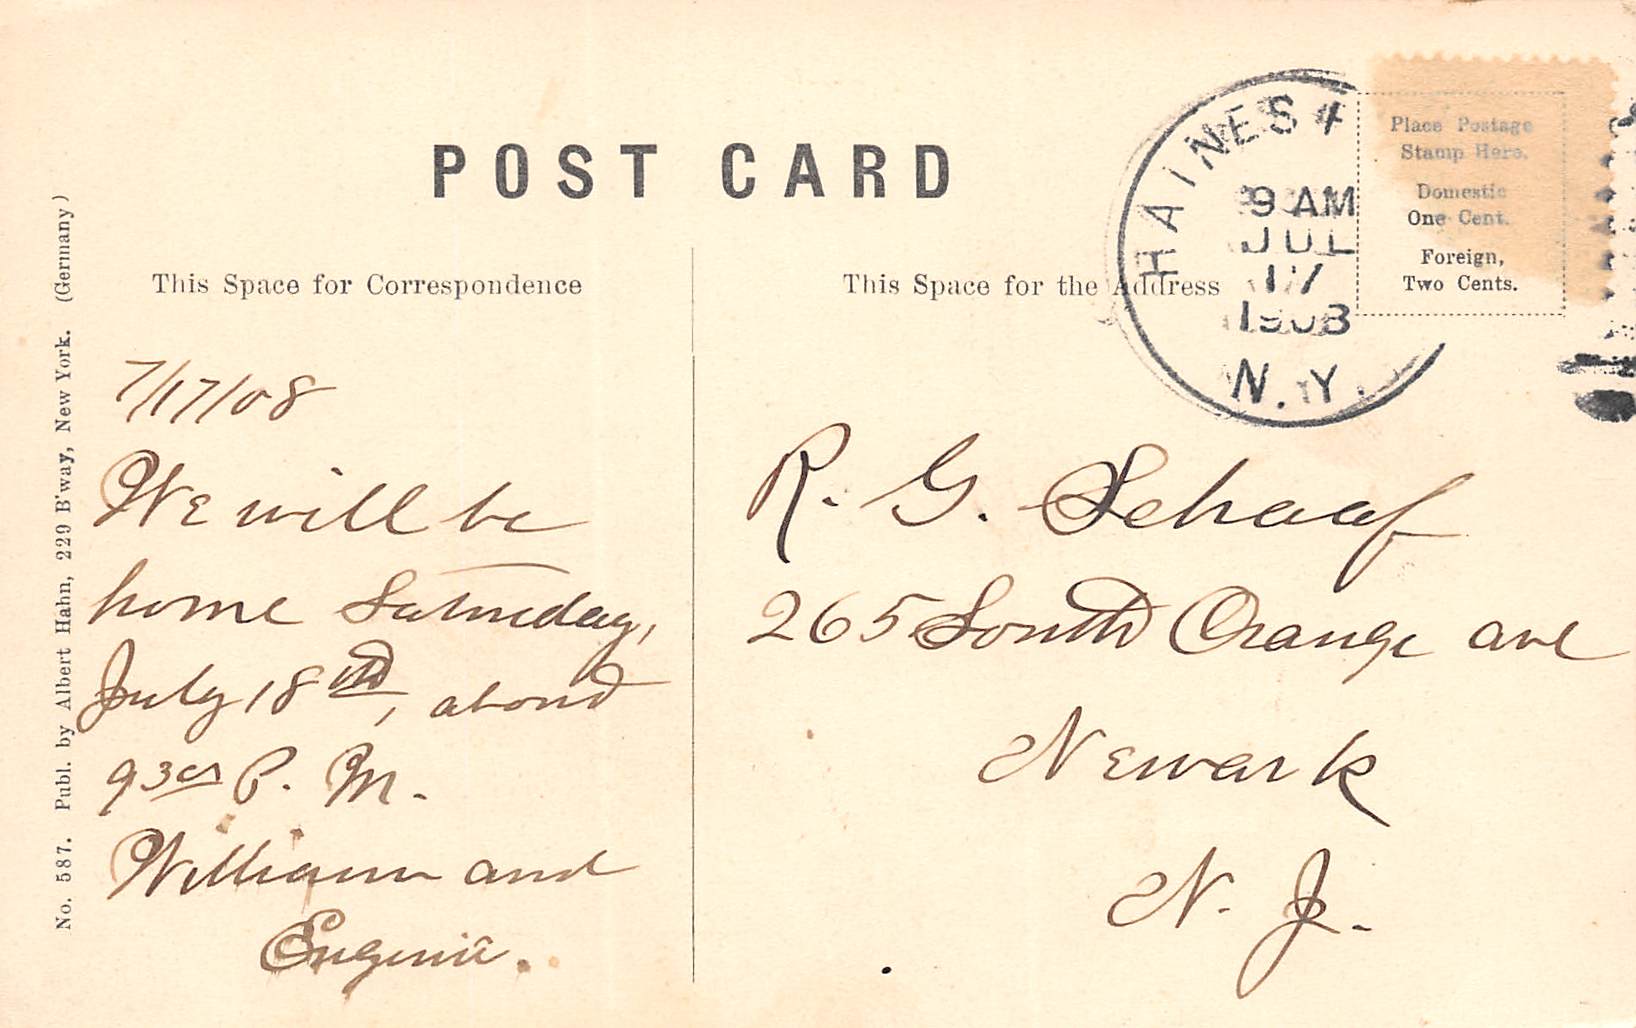 POST CARD
This Space for Correspondence
This Space for the Address
Place Postage
Stamp Here.
Domestic
One Cent.
Foreign,
Two Cents.
HAINES
9 AM
JUL
17
1908
N.Y.
7/17/08
We will be
home Saturday,
July 18th, about
930 P. M.
William and
Eugenie.
R. G. Schaaf
265 South Orange ave
Newark
N. J.
No. 587. Publ. by Albert Hahn, 229 B'way, New York. (Germany)